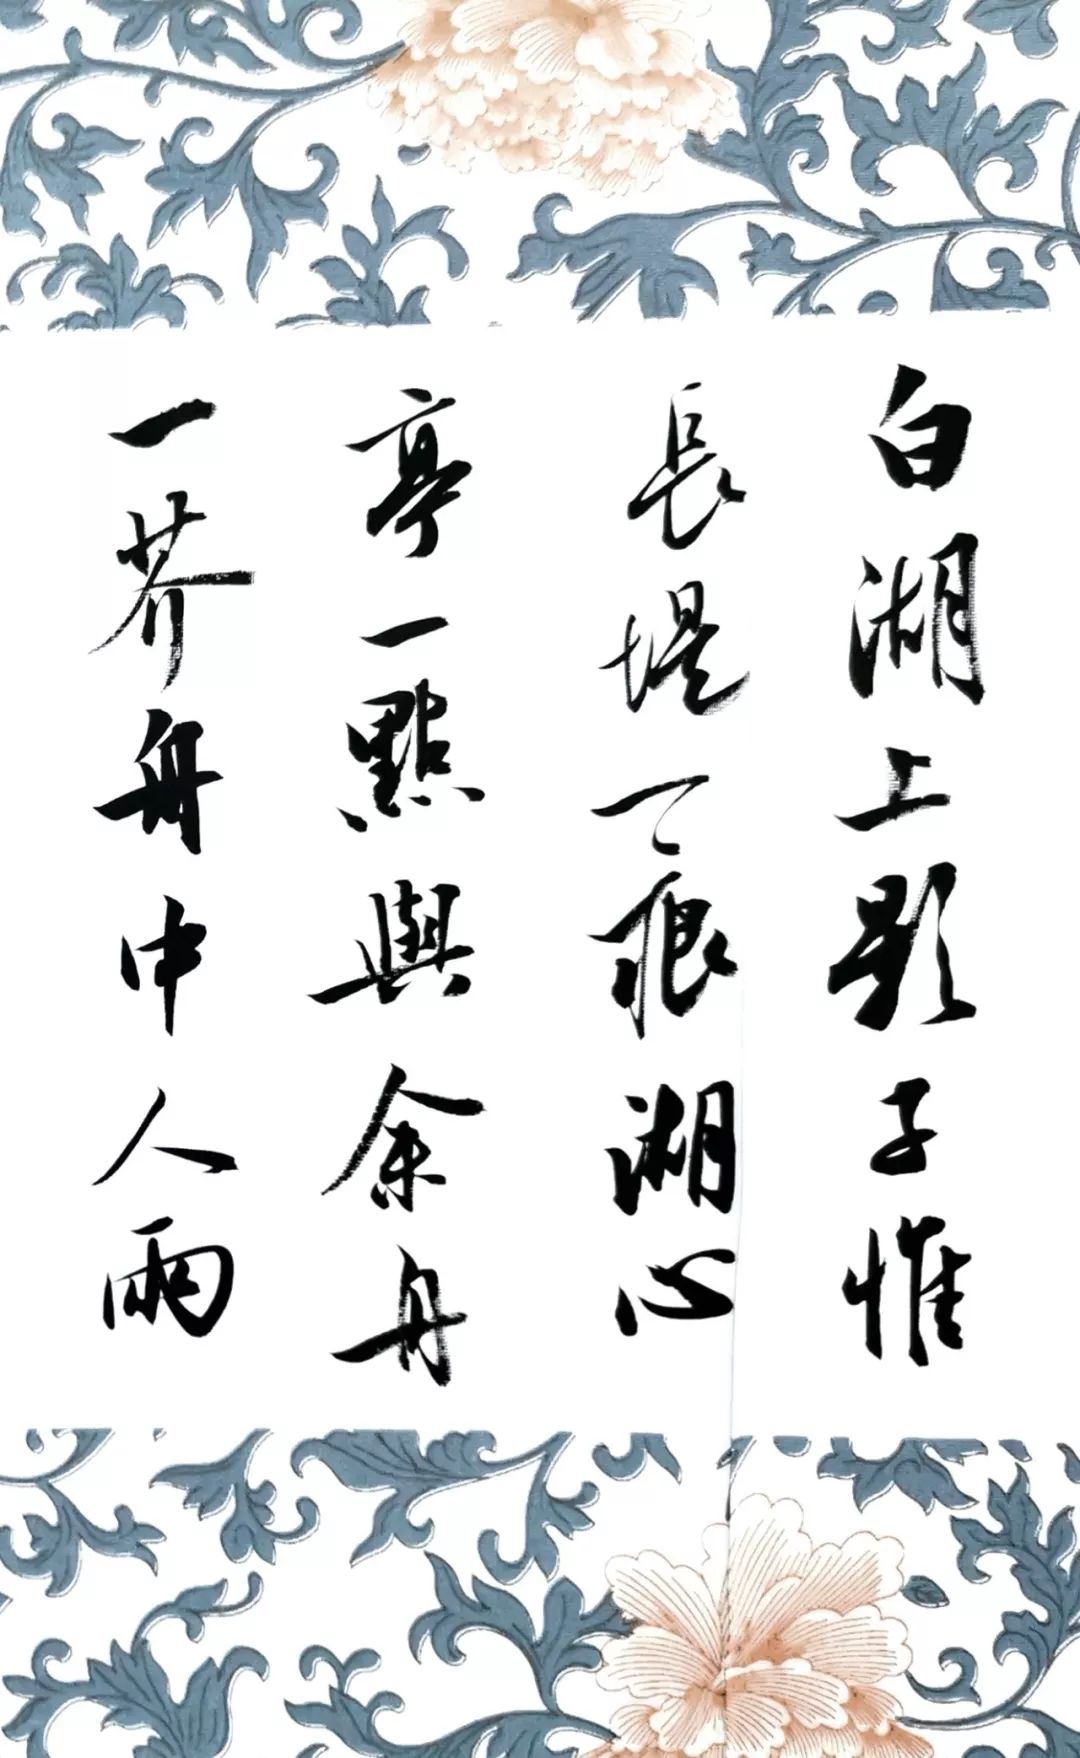 白湖上影子惟
長堤一痕湖心
亭一點與余舟
一芥舟中人兩